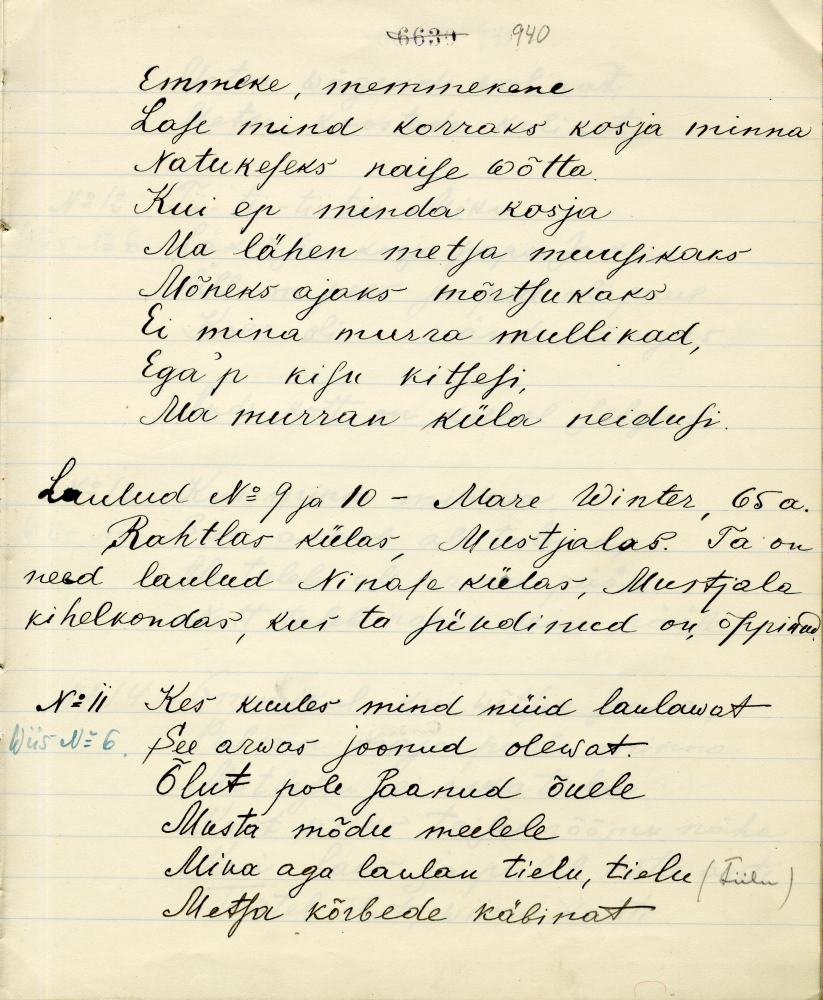 6630 940
Emmeke, memmekene
Lase mind korraks kosja minna
Natukeseks naise wõtta.
Kui ep minda kosja
Ma lähen metsa muusikaks
Mõneks ajaks mõrtsukaks
Ei mina murra mullikad,
Ega'p kisu kitsesi,
Ma murran küla neidusi.
Laulud № 9 ja 10 - Mare Winter, 65 a.
Rahtlas külas, Mustjalas. Ta on
need laulud Ninase külas, Mustjala
kihelkondas, kus ta sündinud on, õppinud.
№ 11 Kes kuules mind nüid laulawat
Wiis № 6. See arwas joonud olewat.
Õlut pole saanud õuele
Musta mõdu meelele
Mina aga laulan tielu, tielu (tiilu)
Metsa kõrbede käbinat